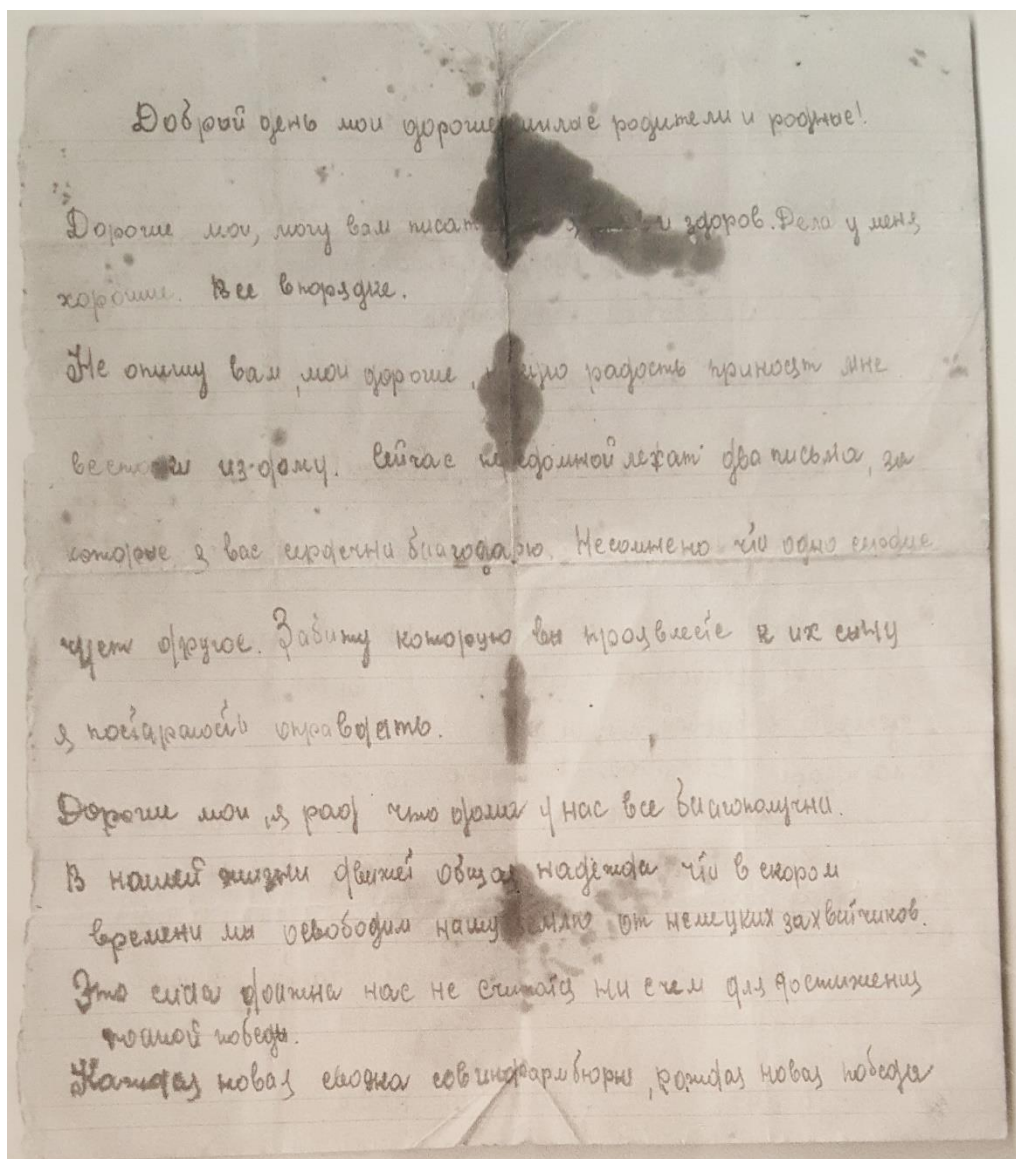 Добрый день мои дорогие милые родители и родные!
Дорогие мои, могу вам писать я и здоров. Дела у меня
хорошие. Все впорядке.
Не опишу вам, мои дорогие, какую радость приносят мне
весточки из-дому. Сейчас передомной лежат два письма, за
которые я вас сердечни благодарю. Несомнено что одно
другое. Заботу которую вы проявлеете к их сыну
я постараюсь оправдать.
Дорогие мои, я рад что дома у нас все благополучни.
В нашей жизни движет общая надежда что в скором
времени мы освободим нашу землю от немецких захватчиков.
Это сила должна нас не считатя ни счем для достижения
полной победы.
Каждая новая сводка совинформбюры, каждая новая победа